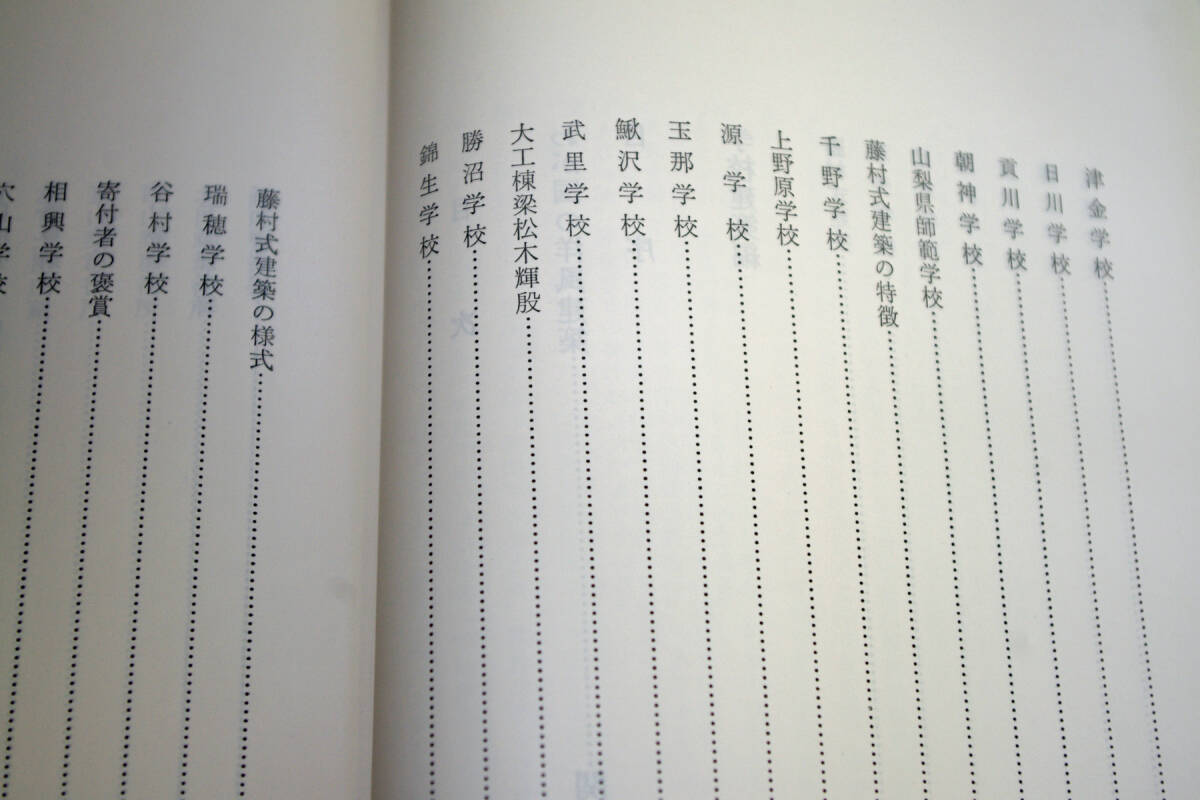 津金学校
日川学校
貢川学校
朝神学校
山梨県師範学校
藤村式建築の特徴
千野学校
上野原学校
源学校
玉那学校
鰍沢学校
武里学校
大工棟梁松木輝殷
勝沼学校
錦生学校
藤村式建築の様式
瑞穂学校
谷村学校
寄付者の褒賞
相興学校
穴山学校